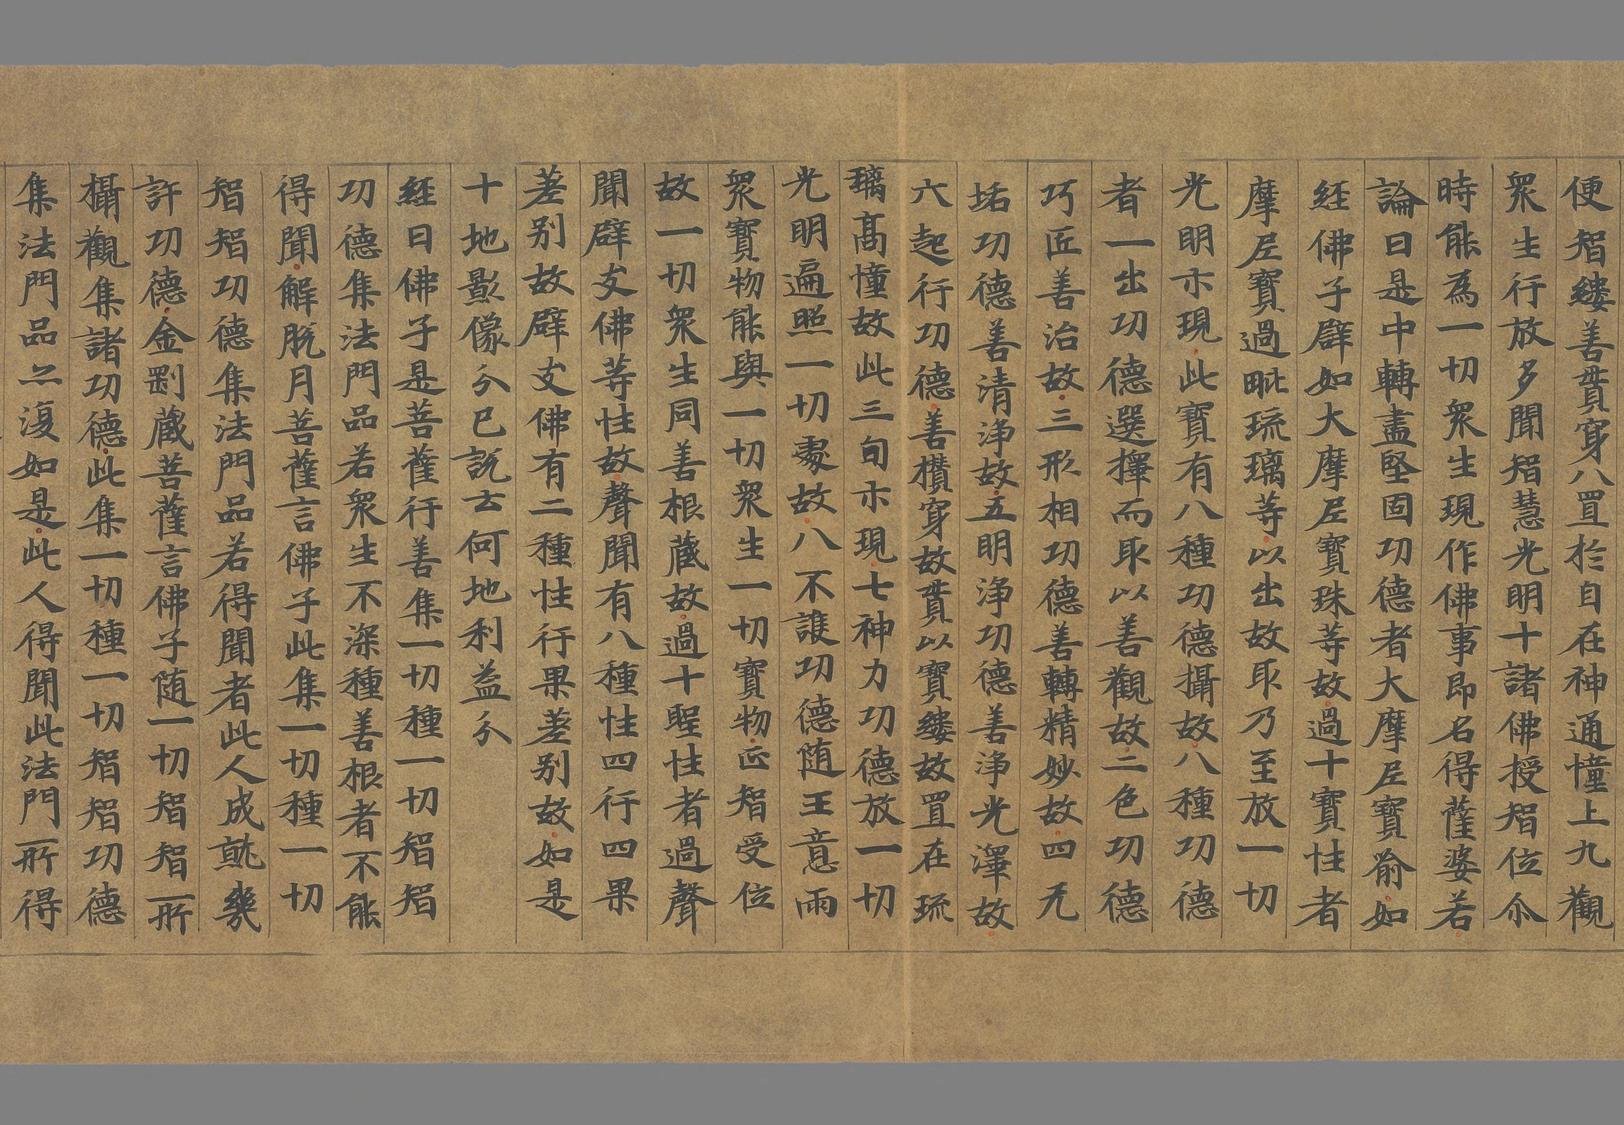 便智縷善貫穿八置於自在神通憧上九觀
衆生行放多聞智慧光明十諸佛授智位尒
時能為一切衆生現作佛事即名得薩婆若
論曰是中轉盡堅固功德者大摩尼寶喻如
經佛子譬如大摩尼寶珠等故過十寶性者
摩尼寶過毗琉璃等以出故取乃至放一切
光明示現此寶有八種功德攝故八種功德
者一出功德選擇而取以善觀故二色功德
巧匠善治故三形相功德善轉精妙故四无
垢功德善清淨故五明淨功德善淨光澤故
六起行功德善攢穿故貫以寶縷故置在琉
璃髙憧故此三句示現七神力功德放一切
光明遍照一切處故八不護功德随王意雨
衆寶物能與一切衆生一切寶物正智受位
故一切衆生同善根藏故過十聖性者過聲
聞辟支佛等性故聲聞有八種性四行四果
差别故辟支佛有二種性行果差别故如是
十地影像分已說去何地利益分
經曰佛子是菩薩行善集一切種一切智智
功德集法門品若衆生不深種善根者不能
得聞解脫月菩薩言佛子此集一切種一切
智智功德集法門品若得聞者此人成就幾
許功德金剛藏菩薩言佛子随一切智智所
攝觀集諸功德此集一切種一切智智功德
集法門品亦復如是此人得聞此法門所得